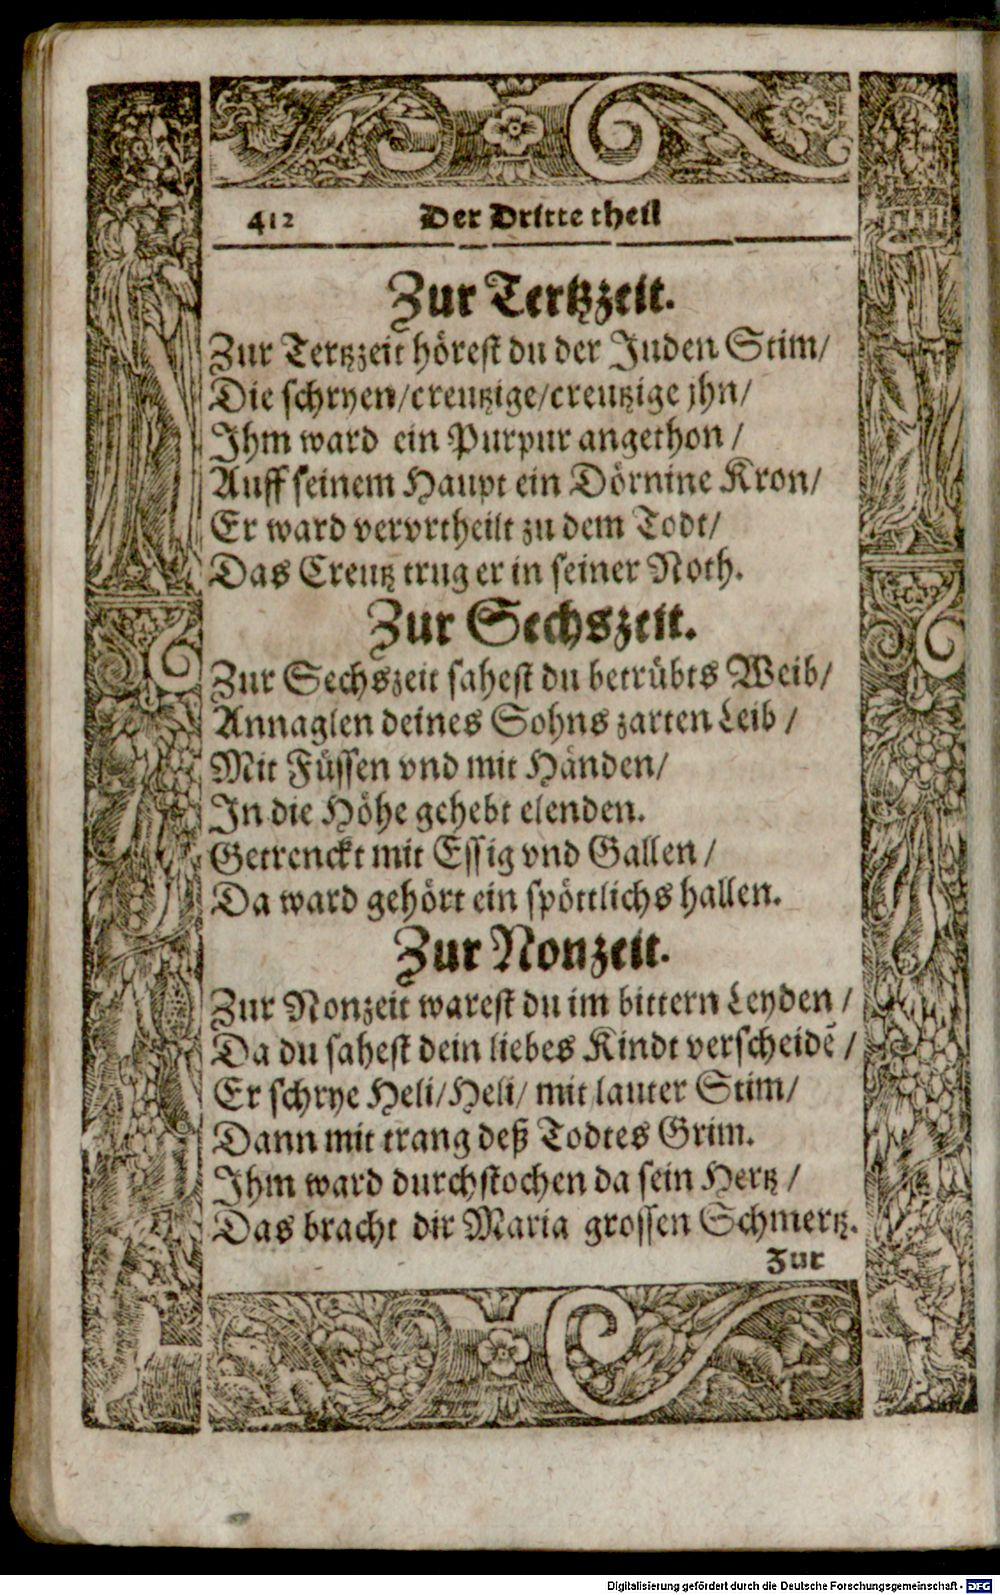 412 Der Dritte theil
Zur Tertzzeit.
Zur Tertzzeit hörest du der Juden Stim/
Die schryen/creutzige/creutzige jhn/
Ihm ward ein Purpur angethon /
Auff seinem Haupt ein Dörnine Kron/
Er ward vervrtheilt zu dem Todt/
Das Creutz trug er in seiner Noth.
Zur Sechszeit.
Zur Sechszeit sahest du betrübts Weib/
Annaglen deines Sohns zarten Leib /
Mit Füssen vnd mit Händen/
In die Höhe gehebt elenden.
Getrenckt mit Essig vnd Gallen /
Da ward gehört ein spöttlichs hallen.
Zur Nonzeit.
Zur Nonzeit warest du im bittern Leyden /
Da du sahest dein liebes Kindt verscheidẽ /
Er schrye Heli/Heli/ mit lauter Stim/
Dann mit trang deß Todtes Grim.
Ihm ward durchstochen da sein Hertz /
Das bracht dir Maria grossen Schmertz.
Zur
Digitalisierung gefördert durch die Deutsche Forschungsgemeinschaft - DFG